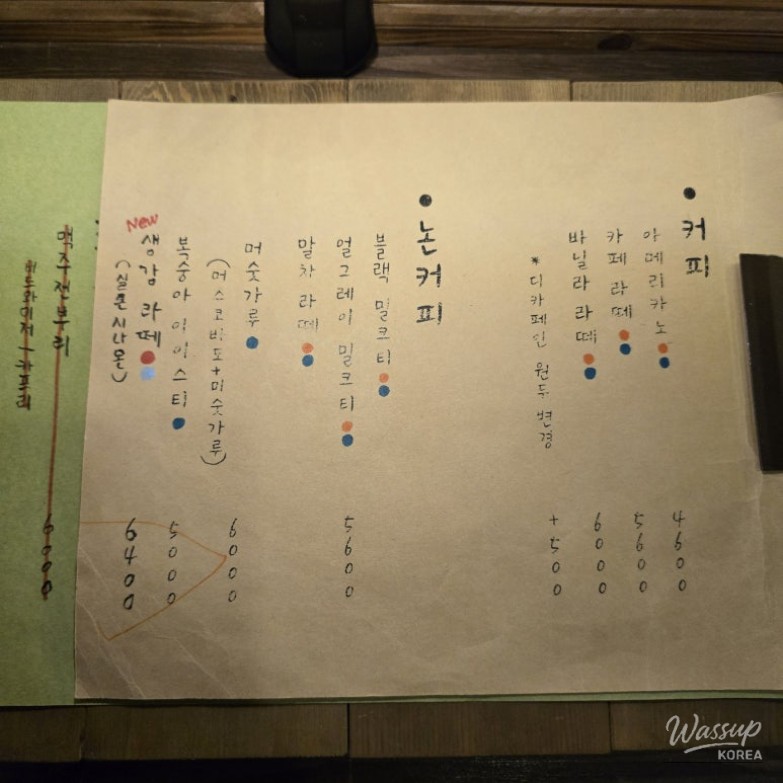 • 커피
아메리카노 4600
카페 라떼 5600
바닐라 라떼 6000
* 디카페인 원두 변경 +500
• 논커피
블랙 밀크티
얼그레이 밀크티 5600
말차 라떼
머슷가루 6000
(머스코바도+미숫가루)
복숭아 아이스티 5000
New
생감 라떼 6400
(실론시나몬)
맥주전부리 6000
버드와이저 - 카프리
Wassup
KOREA